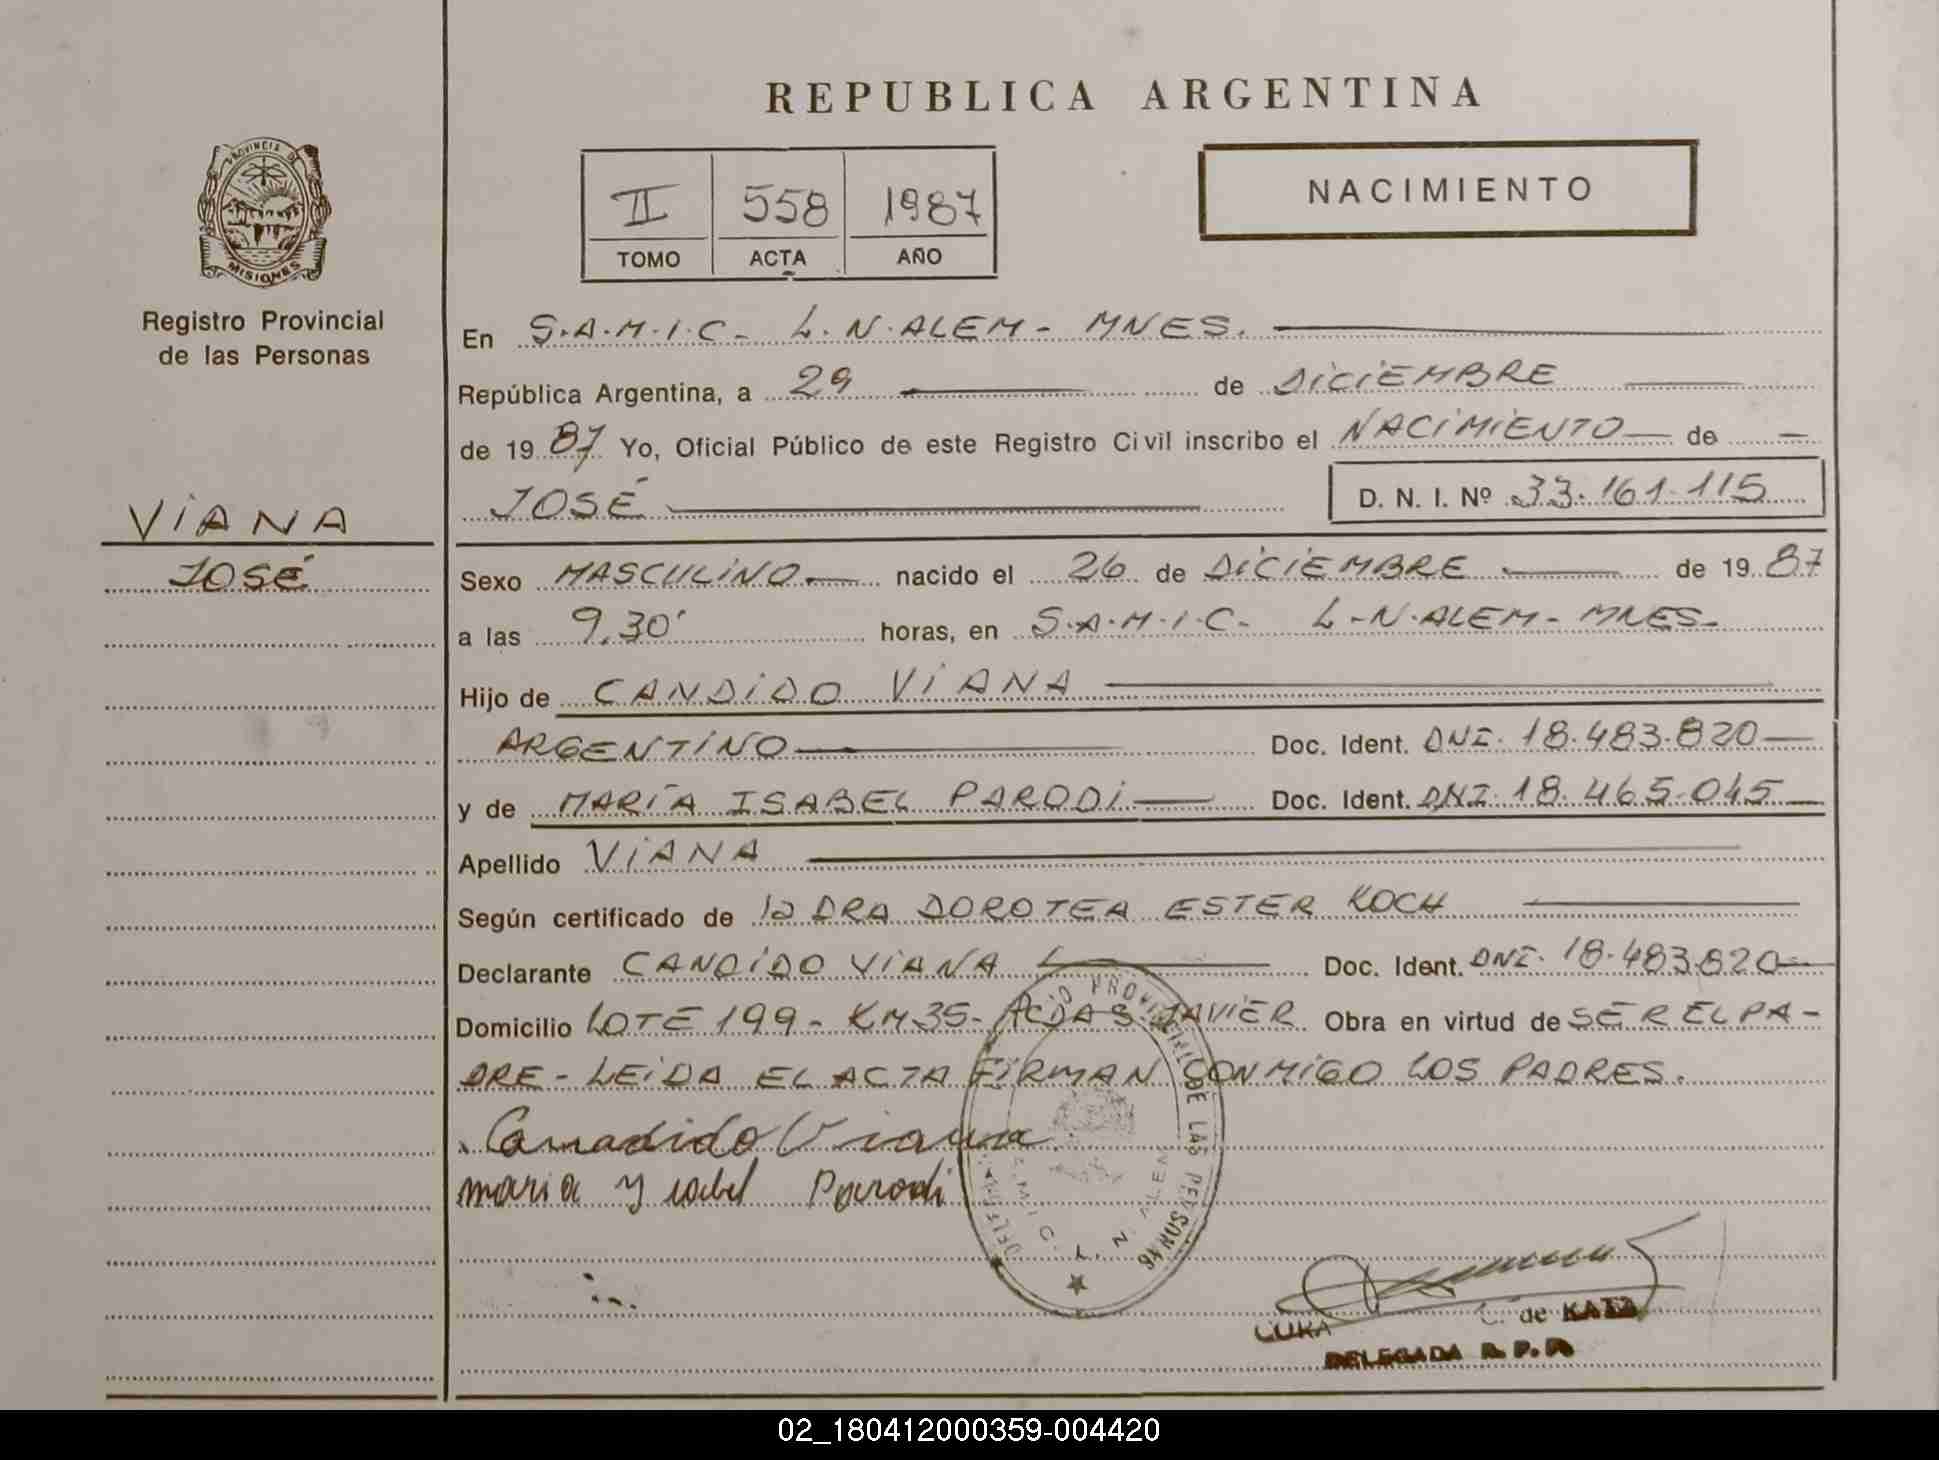 REPUBLICA ARGENTINA
PROVINCIA DE
MISIONES
Registro Provincial
de las Personas
II 558 1987
TOMO ACTA AÑO
NACIMIENTO
En S.A.M.I.C- L.N.ALEM- MNES.
República Argentina, a 29 de DICIEMBRE
de 1987 Yo, Oficial Público de este Registro Civil inscribo el NACIMIENTO de
JOSÉ D. N. I. Nº 33.161.115
VIANA
JOSÉ
Sexo MASCULINO nacido el 26 de DICIEMBRE de 1987
a las 9,30' horas, en S.A.M.I.C- L-N.ALEM- MNES-
Hijo de CANDIDO VIANA
ARGENTINO Doc. Ident. DNI. 18.483.820
y de MARÍA ISABEL PARODI Doc. Ident. DNI 18.465.045
Apellido VIANA
Según certificado de la DRA DOROTEA ESTER KOCH
Declarante CANDIDO VIANA Doc. Ident. DNI. 18.483820
Domicilio LOTE 199- KM35- ACDAS JAVIER Obra en virtud de SER EL PA-
DRE- LEIDA EL ACTA FIRMAN CONMIGO LOS PADRES.
Canadido Viana
maria Ysabel Parodi
PROVINCIAL DE LAS PERSONAS
N. ALEM
C. de KATZ
DELEGADA R. P. P.
02_180412000359-004420